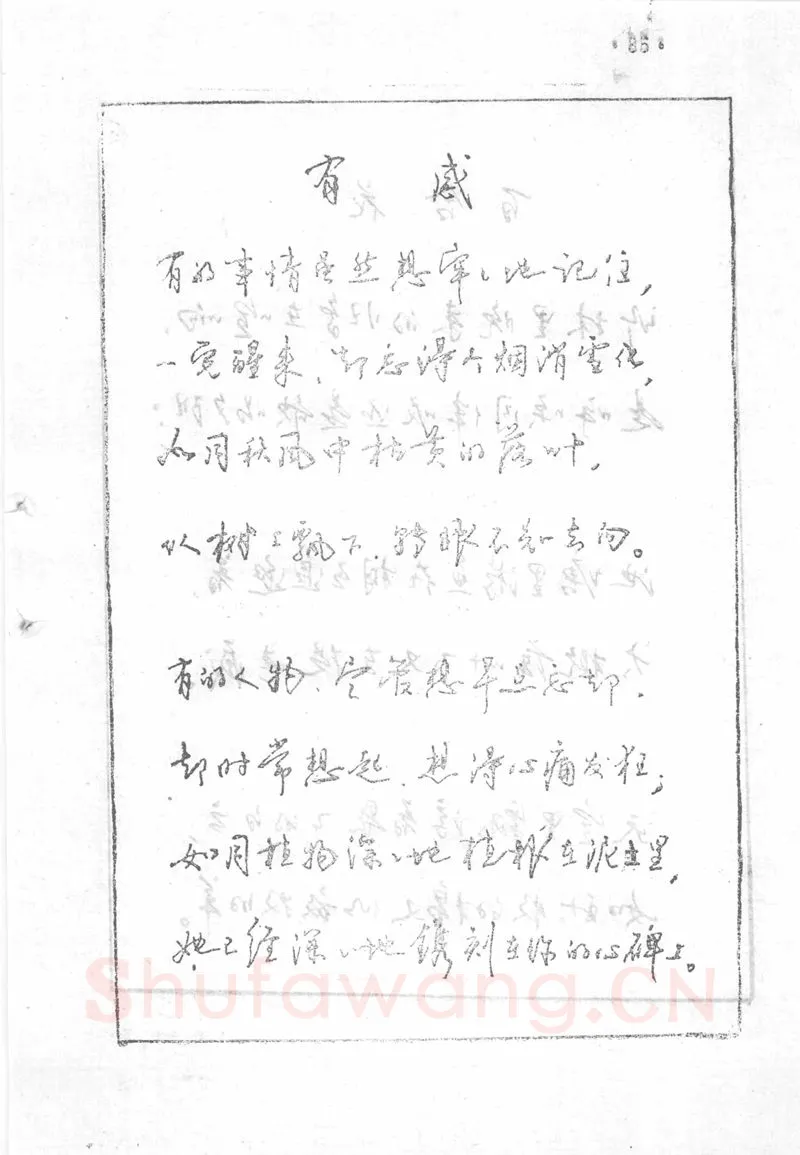 ·86·
有感
有的事情虽然想牢牢地记住，
一觉醒来，却忘得个烟消雪化，
如同秋风中枯黄的落叶，
从树上飘下，转眼不知去向。
有的人物，尽管想早点忘却，
却时常想起，想得心痛发狂；
如同植物深深地植根在泥土里，
她已经深深地镌刻在你的心碑上。
Shufawang.CN